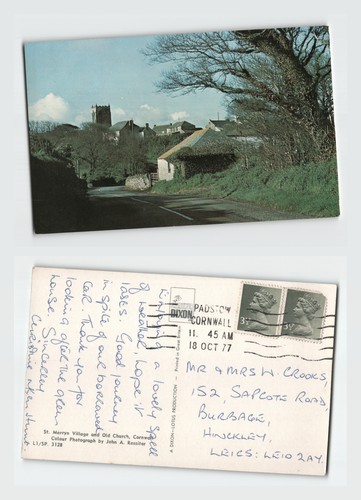 Enjoying a lovely spell
of weather, hope it
lasts. Good journey
in spite of our overland
car. Thank you for
looking after the green
house. Sincerely
Christine
St. Merryn Village and Old Church, Cornwall
Colour Photograph by John A. Rossiter
L1/SP. 3128
A DIXON-LOTUS PRODUCTION
Printed in Great Britain
DIXON
PADSTOW
CORNWALL
11. 45 AM
18 OCT 77
3½P
3½P
MR & MRS W. CROOKS,
152, SAPCOTE ROAD,
BURBAGE,
HINCKLEY,
LEICS: LE10 2AY.